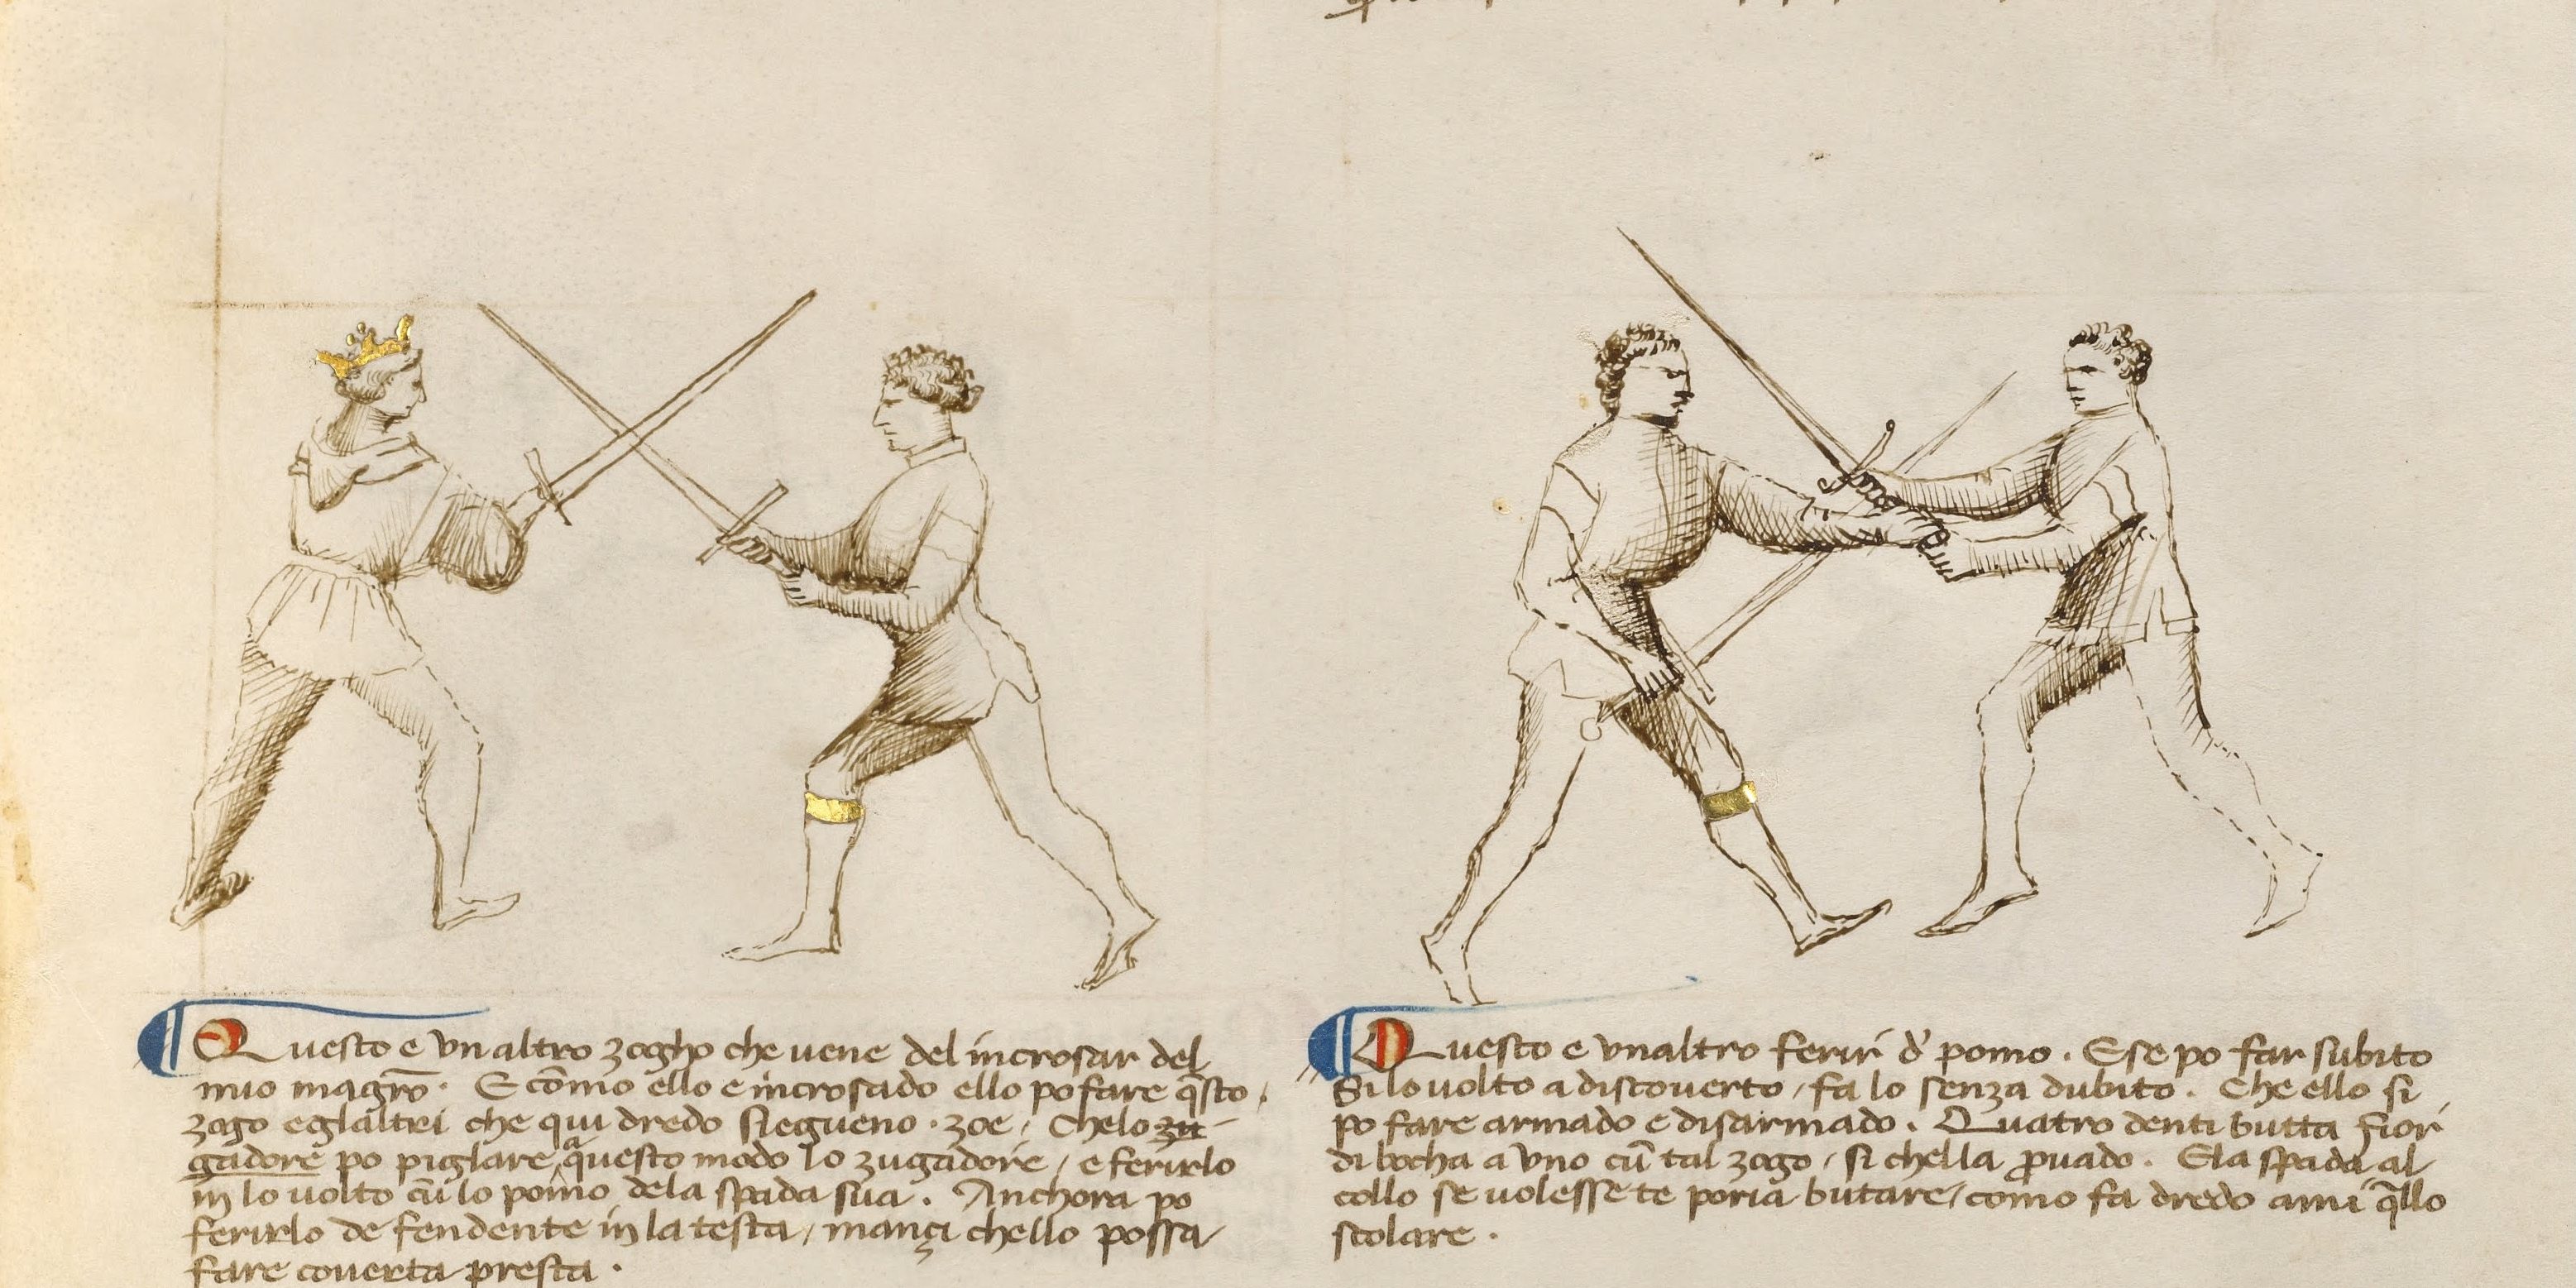 Questo e vn altro zogho che uene del incrosar del
mio magrō. E cōmo ello e incrosado ello po fare q̄sto
zogo e gl altri che qui dredo siegueno. zoe / Chelo zu-
gadore po piglare a questo modo lo zugadore / e ferirlo
in lo uolto cū lo pomo dela spada sua. Anchora po
ferirlo de fendente in la testa / mançi chello possa
fare couerta presta.
Questo e vnaltro ferir d' pomo. E se po far subito
Si lo uolto a discouerto / fa lo senza dubito. Che ello si
po fare armado e disarmado. Quatro denti butta fior
di bocha a vno cū tal zogo / si chella ꝓuado. E la spada al
collo se uolesse te poria butare / como fa dredo a mi q̄llo
scolare.